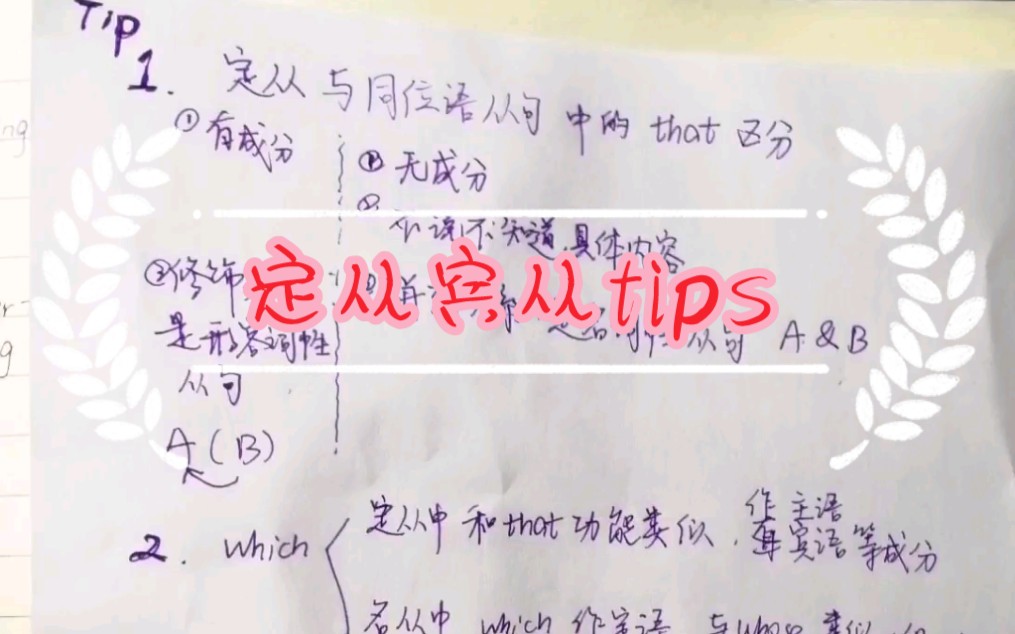 Tip
1. 定从与同位语从句中的 that 区分
① 有成分
① 无成分
②
不读不知道具体内容
② 修饰
是形容词性
从句
A (B)
从句 A & B
定从宾从tips
2. which
定从中和that功能类似,作主语
宾语等成分
名从中 which 作定语 与whose 类似
ng
r-
g